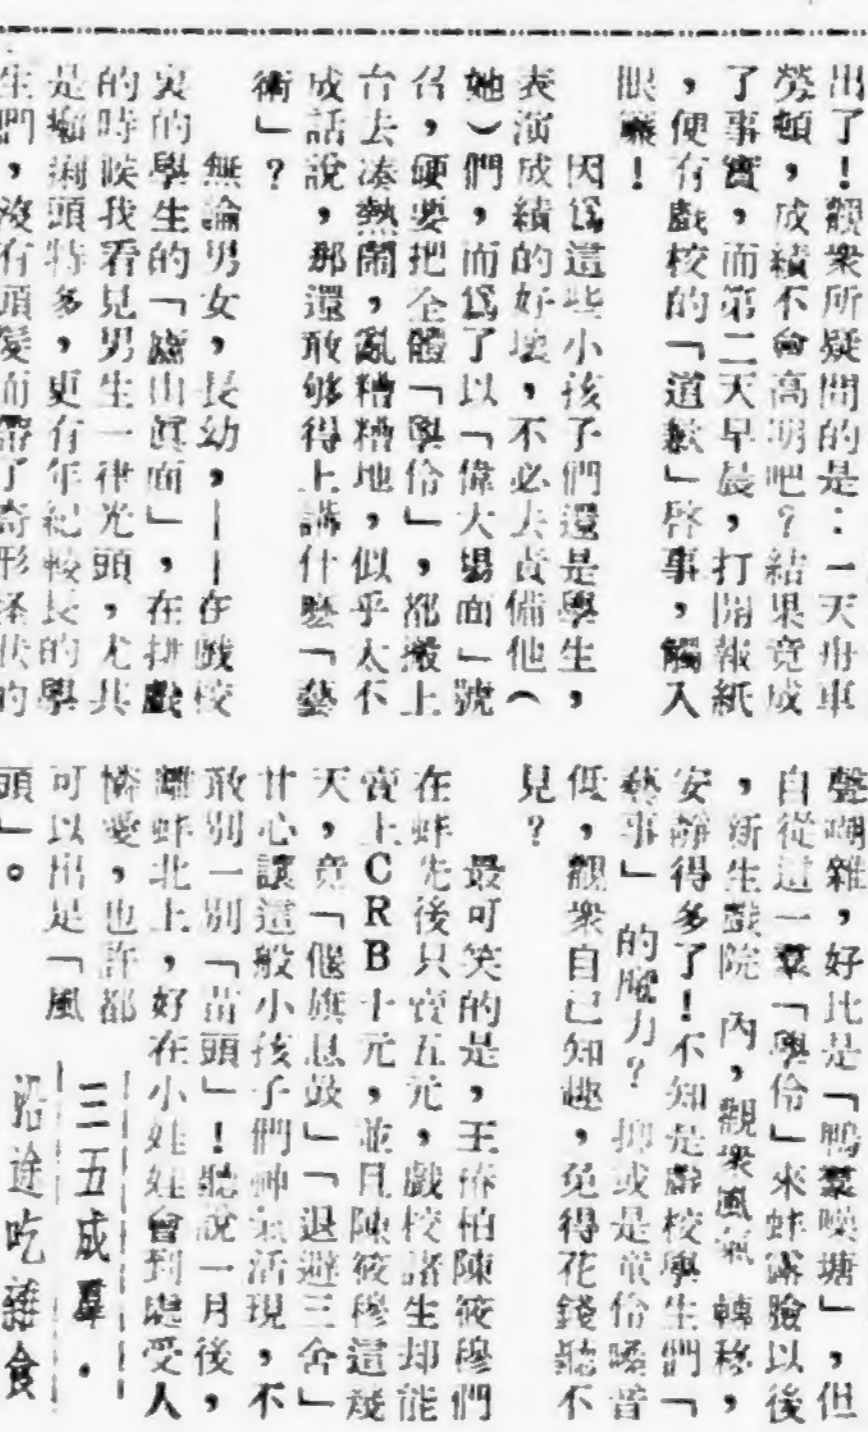 出了！觀衆所疑問的是：一天舟車
勞頓，成績不會高明吧？結果竟成
了事實，而第二天早晨，打開報紙
，便有戲校的「道歉」啓事，觸入
眼簾！
因爲這些小孩子們還是學生，
表演成績的好壞，不必去責備他（
她）們，而爲了以「偉大場面」號
召，硬要把全體「學伶」，都搬上
台去凑熱鬧，亂糟糟地，似乎太不
成話說，那還敢够得上講什麽「藝
術」？
無論男女，長幼，——在戲校
裏的學生的「廬山眞面」，在排戲
的時候我看見男生一律光頭，尤其
是瘌痢頭特多，更有年紀較長的學
生們，沒有頭髮而帶了奇形怪狀的
聲嘲雜，好比是「鴨羣噪塘」，但
自從這一羣「學伶」來蚌露臉以後
，新生戲院內，觀衆風氣轉移，
安靜得多了！不知是戲校學生們「
藝事」的魔力？抑或是童伶嗓音
低，觀衆自己知趣，免得花錢聽不
見？
最可笑的是，王 怕陳筱穆們
在蚌先後只賣五元，戲校諸生却能
賣上CRB十元，並且陳筱穆這幾
天，竟「偃旗息鼓」「退避三舍」
甘心讓這般小孩子們神氣活現，不
敢別一別「苗頭」！聽說一月後，
離蚌北上，好在小娃娃會到處受人
憐愛，也許都
可以出足「風
頭」。
三五成羣．
沿途吃雜食